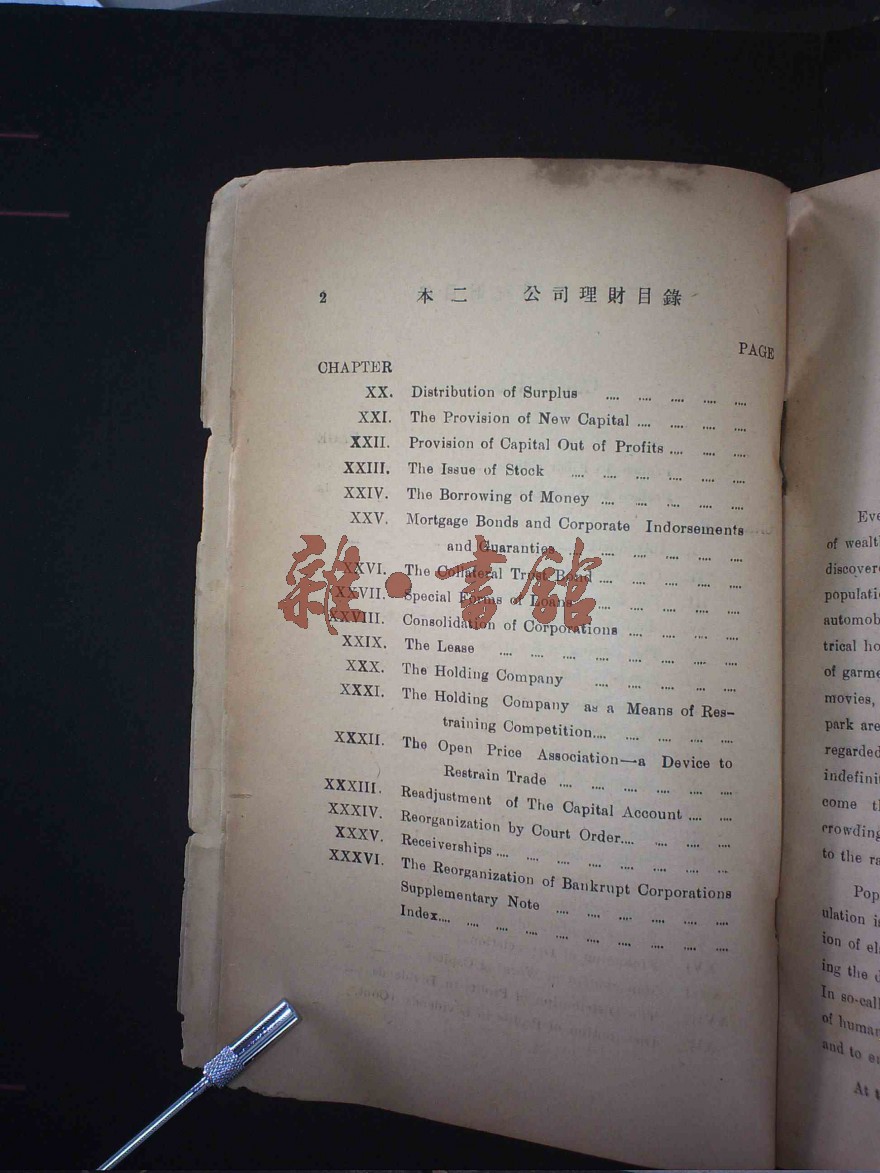 2 木二 公司理財目錄
PAGE
CHAPTER
XX. Distribution of Surplus .... .... .... .... ....
XXI. The Provision of New Capital .... .... .... ....
XXII. Provision of Capital Out of Profits .... .... ....
XXIII. The Issue of Stock .... .... .... .... .... ....
XXIV. The Borrowing of Money .... .... .... .... ....
XXV. Mortgage Bonds and Corporate Indorsements
and Guaranties .... .... .... .... .... ....
XXVI. The Collateral Trust Bond .... .... .... .... ....
XXVII. Special Forms of Loans .... .... .... .... ....
XXVIII. Consolidation of Corporations .... .... .... ....
XXIX. The Lease .... .... .... .... .... .... .... ....
XXX. The Holding Company .... .... .... .... ....
XXXI. The Holding Company as a Means of Res-
training Competition.... .... .... .... ....
XXXII. The Open Price Association—a Device to
Restrain Trade .... .... .... .... .... ....
XXXIII. Readjustment of The Capital Account .... ....
XXXIV. Reorganization by Court Order.... .... .... ....
XXXV. Receiverships .... .... .... .... .... .... .... ....
XXXVI. The Reorganization of Bankrupt Corporations
Supplementary Note .... .... .... .... .... ....
Index.... .... .... .... .... .... .... .... .... ....
雜·書館
of
discovere
automob
trical
of
movies,
park are
regarded
come
crowding
to the
Pop
ulation
ion of
ing the
In so-call
of human
and to
At